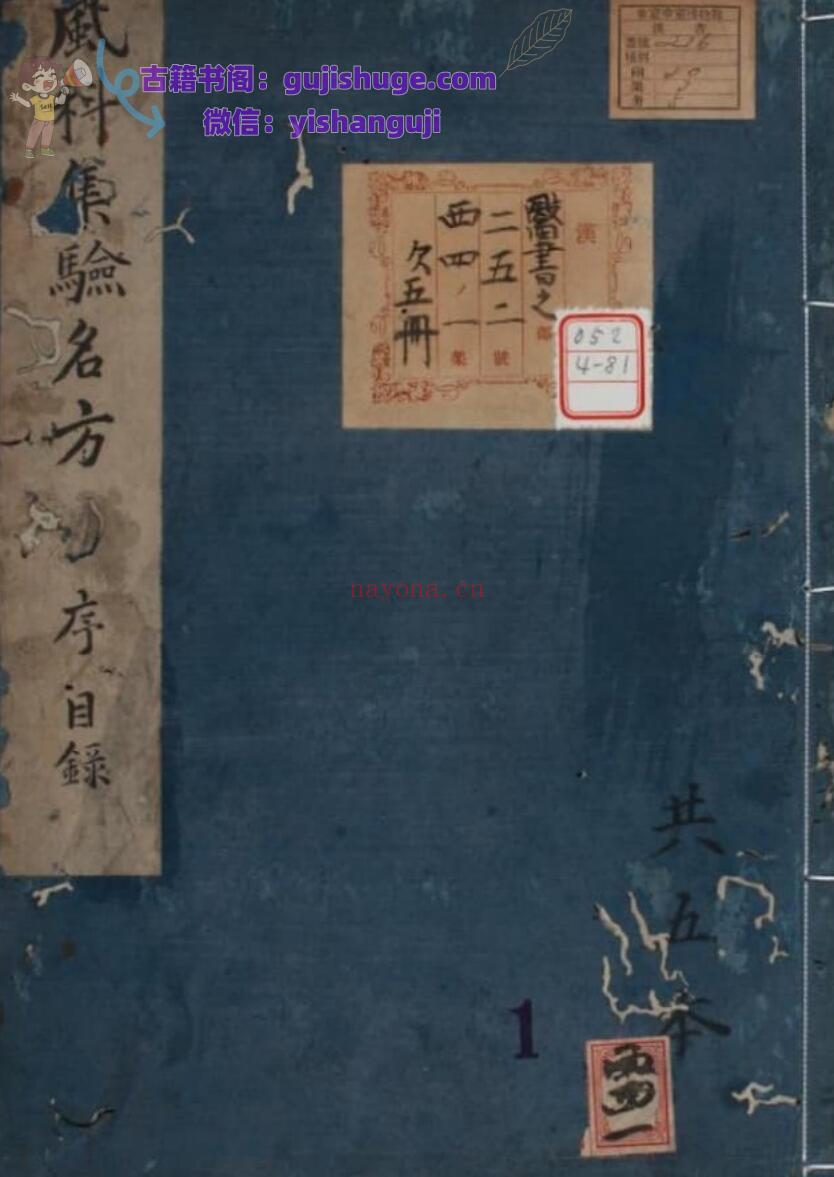 古籍书阁：gujishuge.com
微信：yishanguji
風科集驗名方
序目録
漢
醫書之
部
二五二
號
西四ノ一
架
欠五冊
052
4-81
nayona.cn
共五本
1
西四一